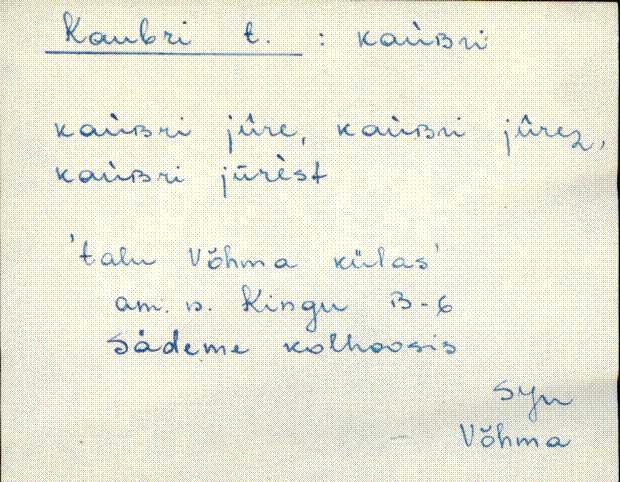 Kaubri t. : kaùʙri
kaùʙri jūre, kaùʙri jūrez,
kaùʙri jūrèst
'talu Võhma külas'
am. n. Kingu B-6
Sädeme kolhoosis
Syn
Võhma